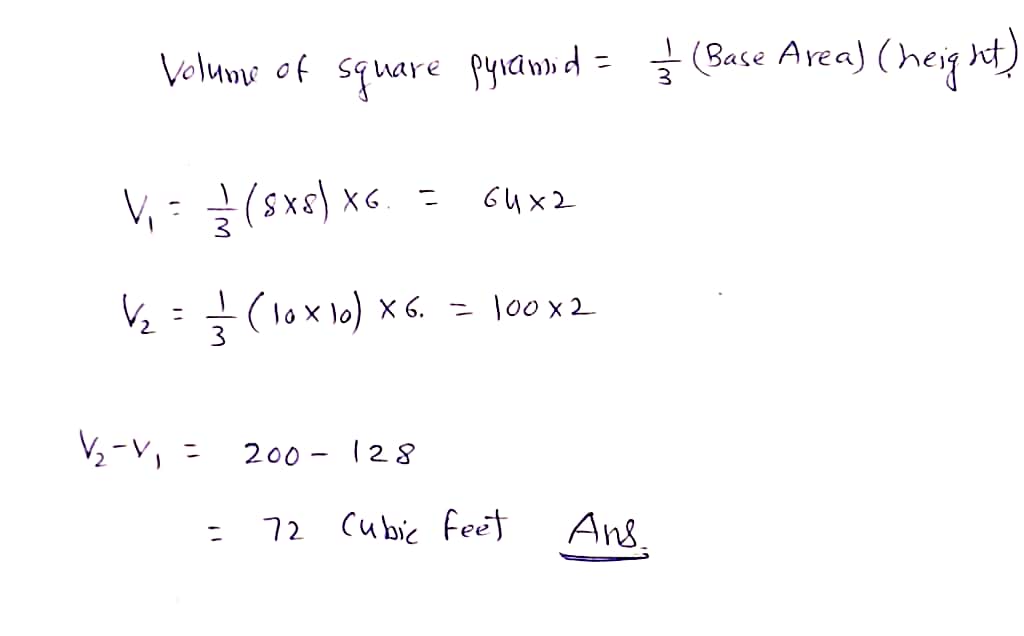 Volume of square pyramid = 1/3 (Base Area) (height)
V₁ = 1/3 (8x8) x6. = 64x2
V₂ = 1/3 (10x10) x6. = 100x2
V₂-V₁ = 200 - 128
= 72 Cubic feet Ans.